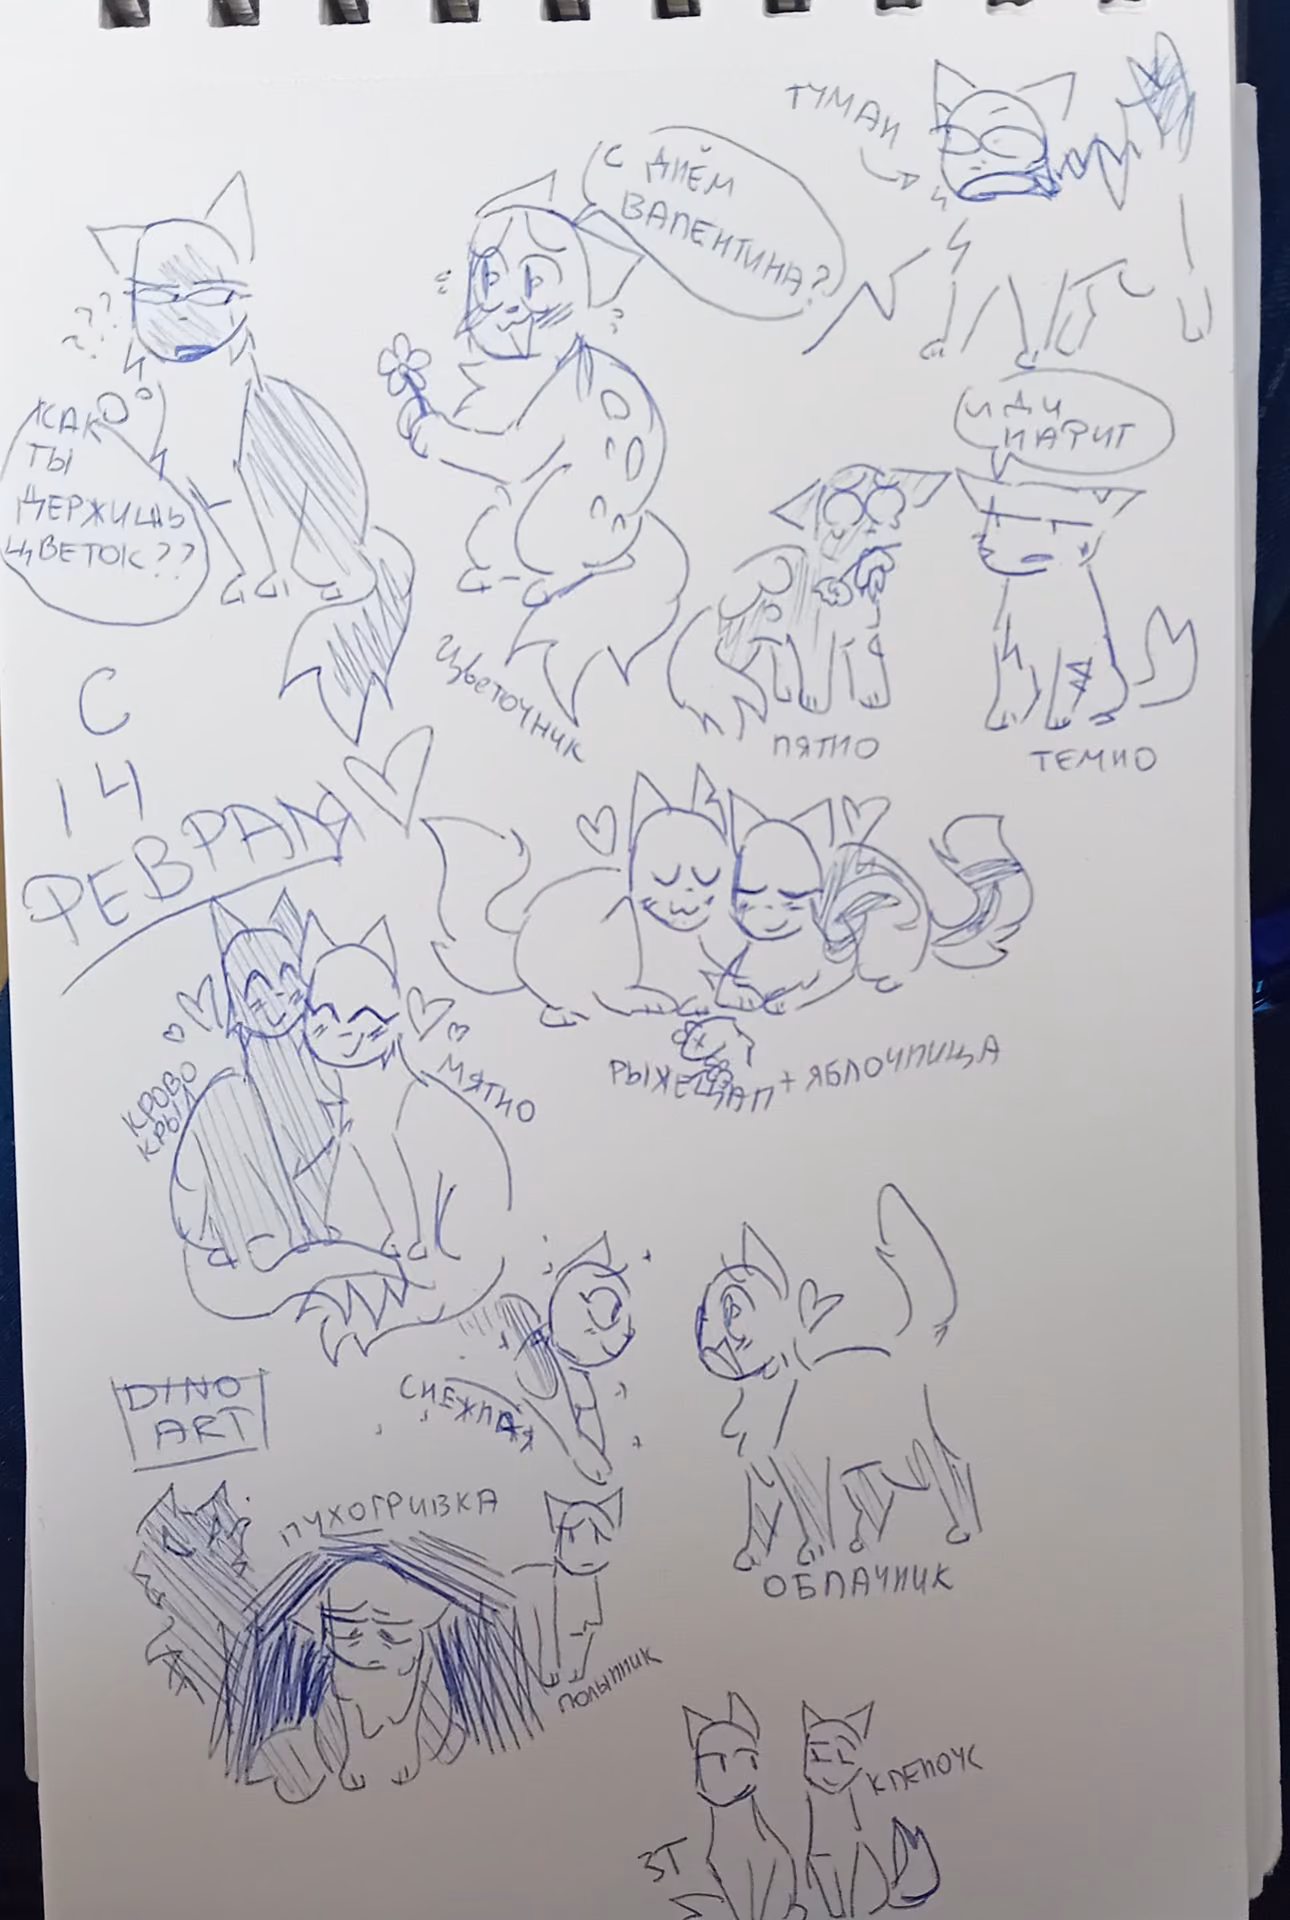 ТУМАН
С ДНЁМ
ВАЛЕНТИНА?
КАК
ТЫ
ДЕРЖИШЬ
ЦВЕТОК??
???
ИДИ
НАФИГ
Цветочник
ПЯТНО
ТЕМНО
С
14
ФЕВРАЛЯ
КРОВО
КРЫЛ
МЯТНО
РЫЖЕЦАП + ЯБЛОЧНИЦА
DINO
ART
ПУХОГРИВКА
ОБЛАЧНИК
ПОЛЫННИК
КЛЕПОЧС
ЗТ